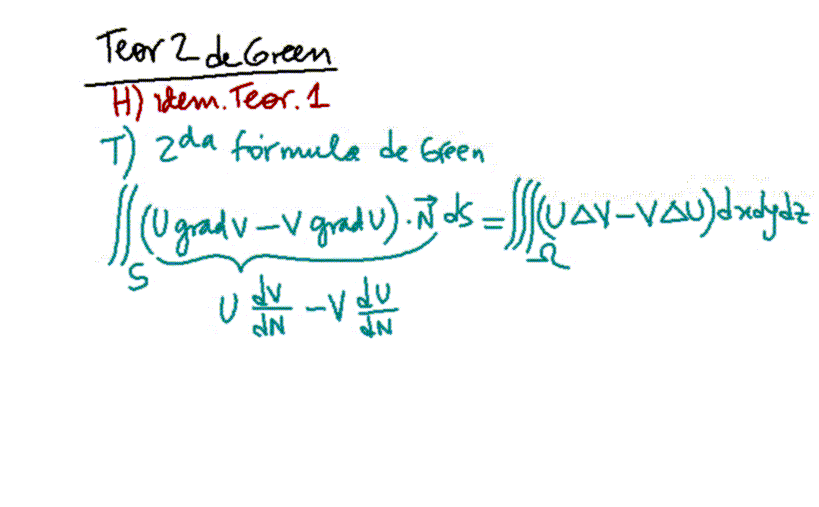 Teor 2 de Green
H) idem. Teor. 1
T) 2da fórmula de Green
∬(U grad V − V grad U) · N⃗ dS = ∭(U ΔV − V ΔU) dx dy dz
S Ω
U dV/dN − V dU/dN